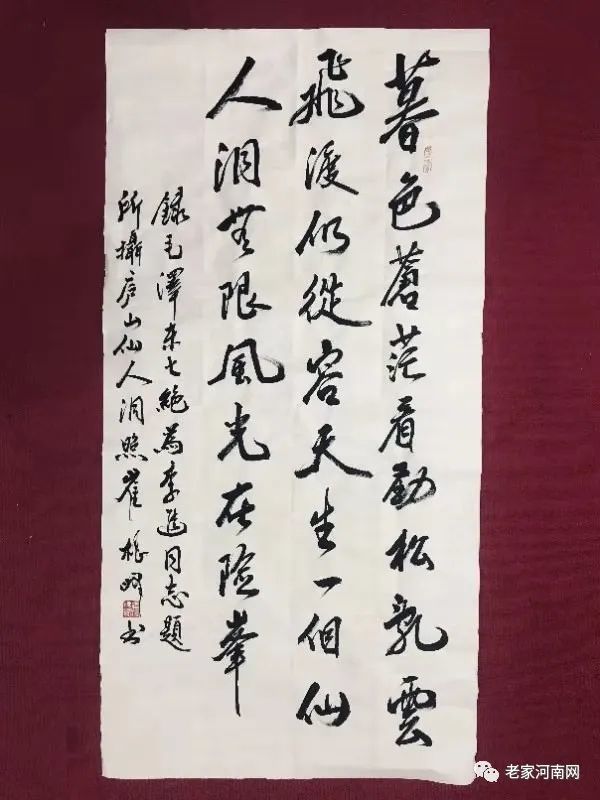 暮色蒼茫看勁松亂雲
飛渡仍從容天生一個仙
人洞無限風光在險峯
錄毛澤東七絕為李進同志題
所攝庐山仙人洞照崔书
老家河南网